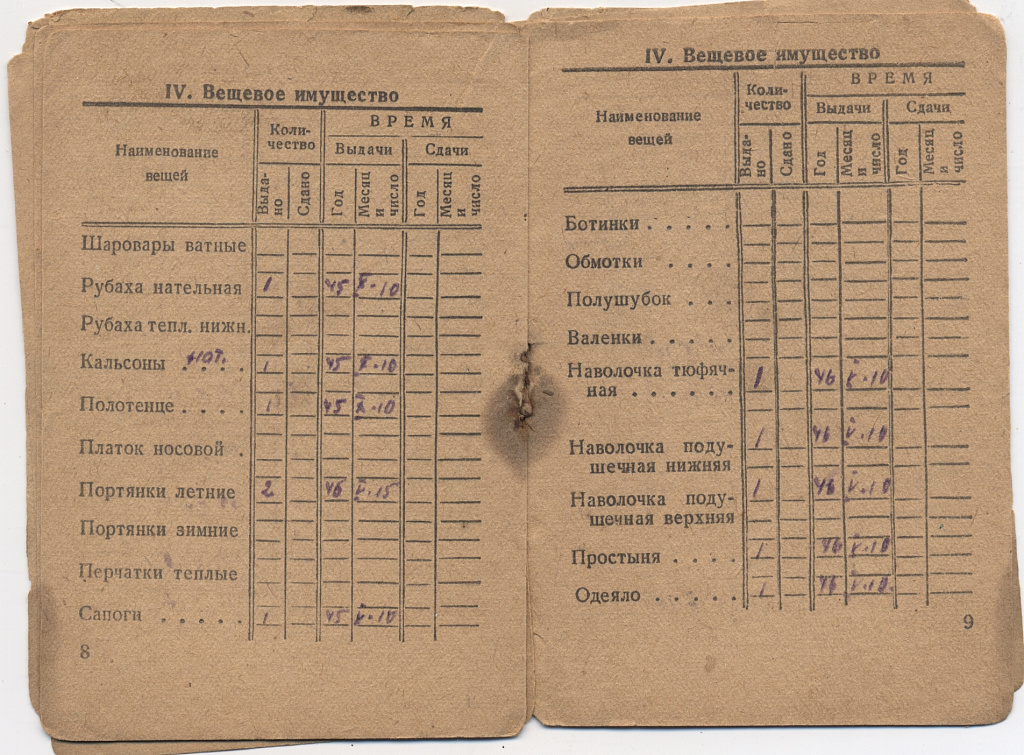 IV. Вещевое имущество
Наименование вещей
Коли-
чество
ВРЕМЯ
Выдачи
Сдачи
Выда-
но
Сдано
Год
Месяц и число
Год
Месяц и число
Шаровары ватные
Рубаха нательная 1 45 X-10
Рубаха тепл. нижн.
Кальсоны нат. . . . . 1 45 X-10
Полотенце . . . . 1 45 X-10
Платок носовой .
Портянки летние 2 46 V-15
Портянки зимние
Перчатки теплые
Сапоги . . . . . 1 45 V-10
8
IV. Вещевое имущество
Наименование
вещей
Коли-
чество
ВРЕМЯ
Выдачи
Сдачи
Выда-
но
Сдано
Год
Месяц и число
Год
Месяц и число
Ботинки . . . . .
Обмотки . . . .
Полушубок . . .
Валенки . . . .
Наволочка тюфяч-
ная . . . . . 1 46 V-10
Наволочка поду- 1 46 V-10
шечная нижняя
Наволочка поду- 1 46 V-10
шечная верхняя
Простыня . . . . 1 46 V-10
Одеяло . . . . . 1 46 V-10.
9